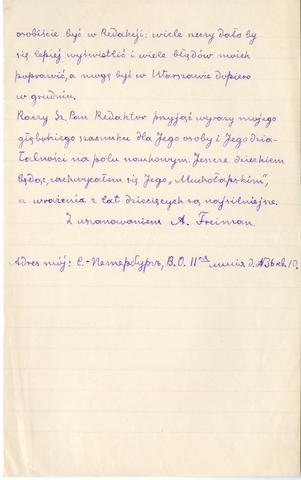 osobiście być w Redakcji: wiele rzeczy dało by
się lepiej wyświetlić i wiele błędów moich
poprawić, a mogę być w Warszawie dopiero
w grudniu.
Raczy Sz. Pan Redaktor przyjąć wyrazy mojego
głębokiego szacunku dla Jego osoby i Jego dzia-
łalności na polu naukowym. Jeszcze dzieckiem
będąc, zachwycałem się Jego „Muchołapskim",
a wrażenia z lat dziecięcych są najsilniejsze.
Z uszanowaniem A. Freiman.
Adres mój: С.-Петербургъ, В.О. 11ая линія д. №36 кв. 10.